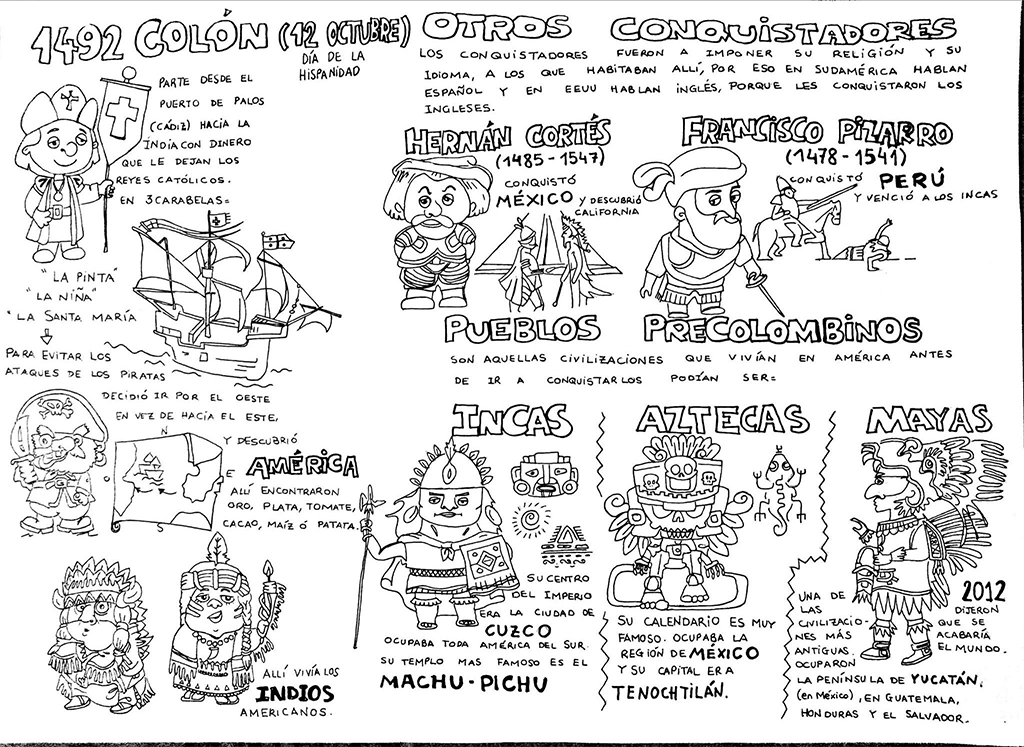 1492 COLÓN (12 OCTUBRE)
DÍA DE LA
HISPANIDAD
PARTE DESDE EL
PUERTO DE PALOS
(CADIZ) HACIA LA
ÍNDIA CON DINERO
QUE LE DEJAN LOS
REYES CATÓLICOS.
EN 3 CARABELAS=
"LA PINTA"
"LA NIÑA"
"LA SANTA MARÍA
PARA EVITAR LOS
ATAQUES DE LOS PIRATAS
DECIDIÓ IR POR EL OESTE
EN VEZ DE HACÍA EL ESTE,
N
S
Y DESCUBRIÓ
E AMÉRICA
ALLÍ ENCONTRARON
ORO, PLATA, TOMATE,
CACAO, MAÍZ Ó PATATA.
ALLÍ VIVÍA LOS
INDIOS
AMERICANOS.
OTROS CONQUISTADORES
LOS CONQUISTADORES FUERON A IMPONER SU RELIGIÓN Y SU
IDIOMA, A LOS QUE HABITABAN ALLÍ, POR ESO EN SUDAMÉRICA HABLAN
ESPAÑOL Y EN EEUU HABLAN INGLÉS, PORQUE LES CONQUISTARON LOS
INGLESES.
HERNÁN CORTÉS
(1485-1547)
CONQUISTÓ
MÉXICO Y DESCUBRIÓ
CALIFORNIA
FRANCISCO PIZARRO
(1478-1541)
CONQUISTÓ PERÚ
Y VENCIÓ A LOS INCAS
PUEBLOS PRECOLOMBINOS
SON AQUELLAS CIVILIZACIONES QUE VIVÍAN EN AMÉRICA ANTES
DE IR A CONQUISTARLOS PODÍAN SER=
INCAS
SU CENTRO
DEL IMPERIO
ERA LA CIUDAD DE
CUZCO
OCUPABA TODA AMÉRICA DEL SUR.
SU TEMPLO MAS FAMOSO ES EL
MACHU-PICHU
AZTECAS
SU CALENDARIO ES MUY
FAMOSO. OCUPABA LA
REGIÓN DE MÉXICO
Y SU CAPITAL ERA
TENOCHTILÁN.
MAYAS
UNA DE
LAS
CIVILIZACIO-
NES MÁS
ANTIGUAS.
OCUPARON
LA PENÍNSULA DE YUCATÁN,
(en México), EN GUATEMALA,
HONDURAS Y EL SALVADOR.
2012
DIJERON
QUE SE
ACABARÍA
EL MUNDO.